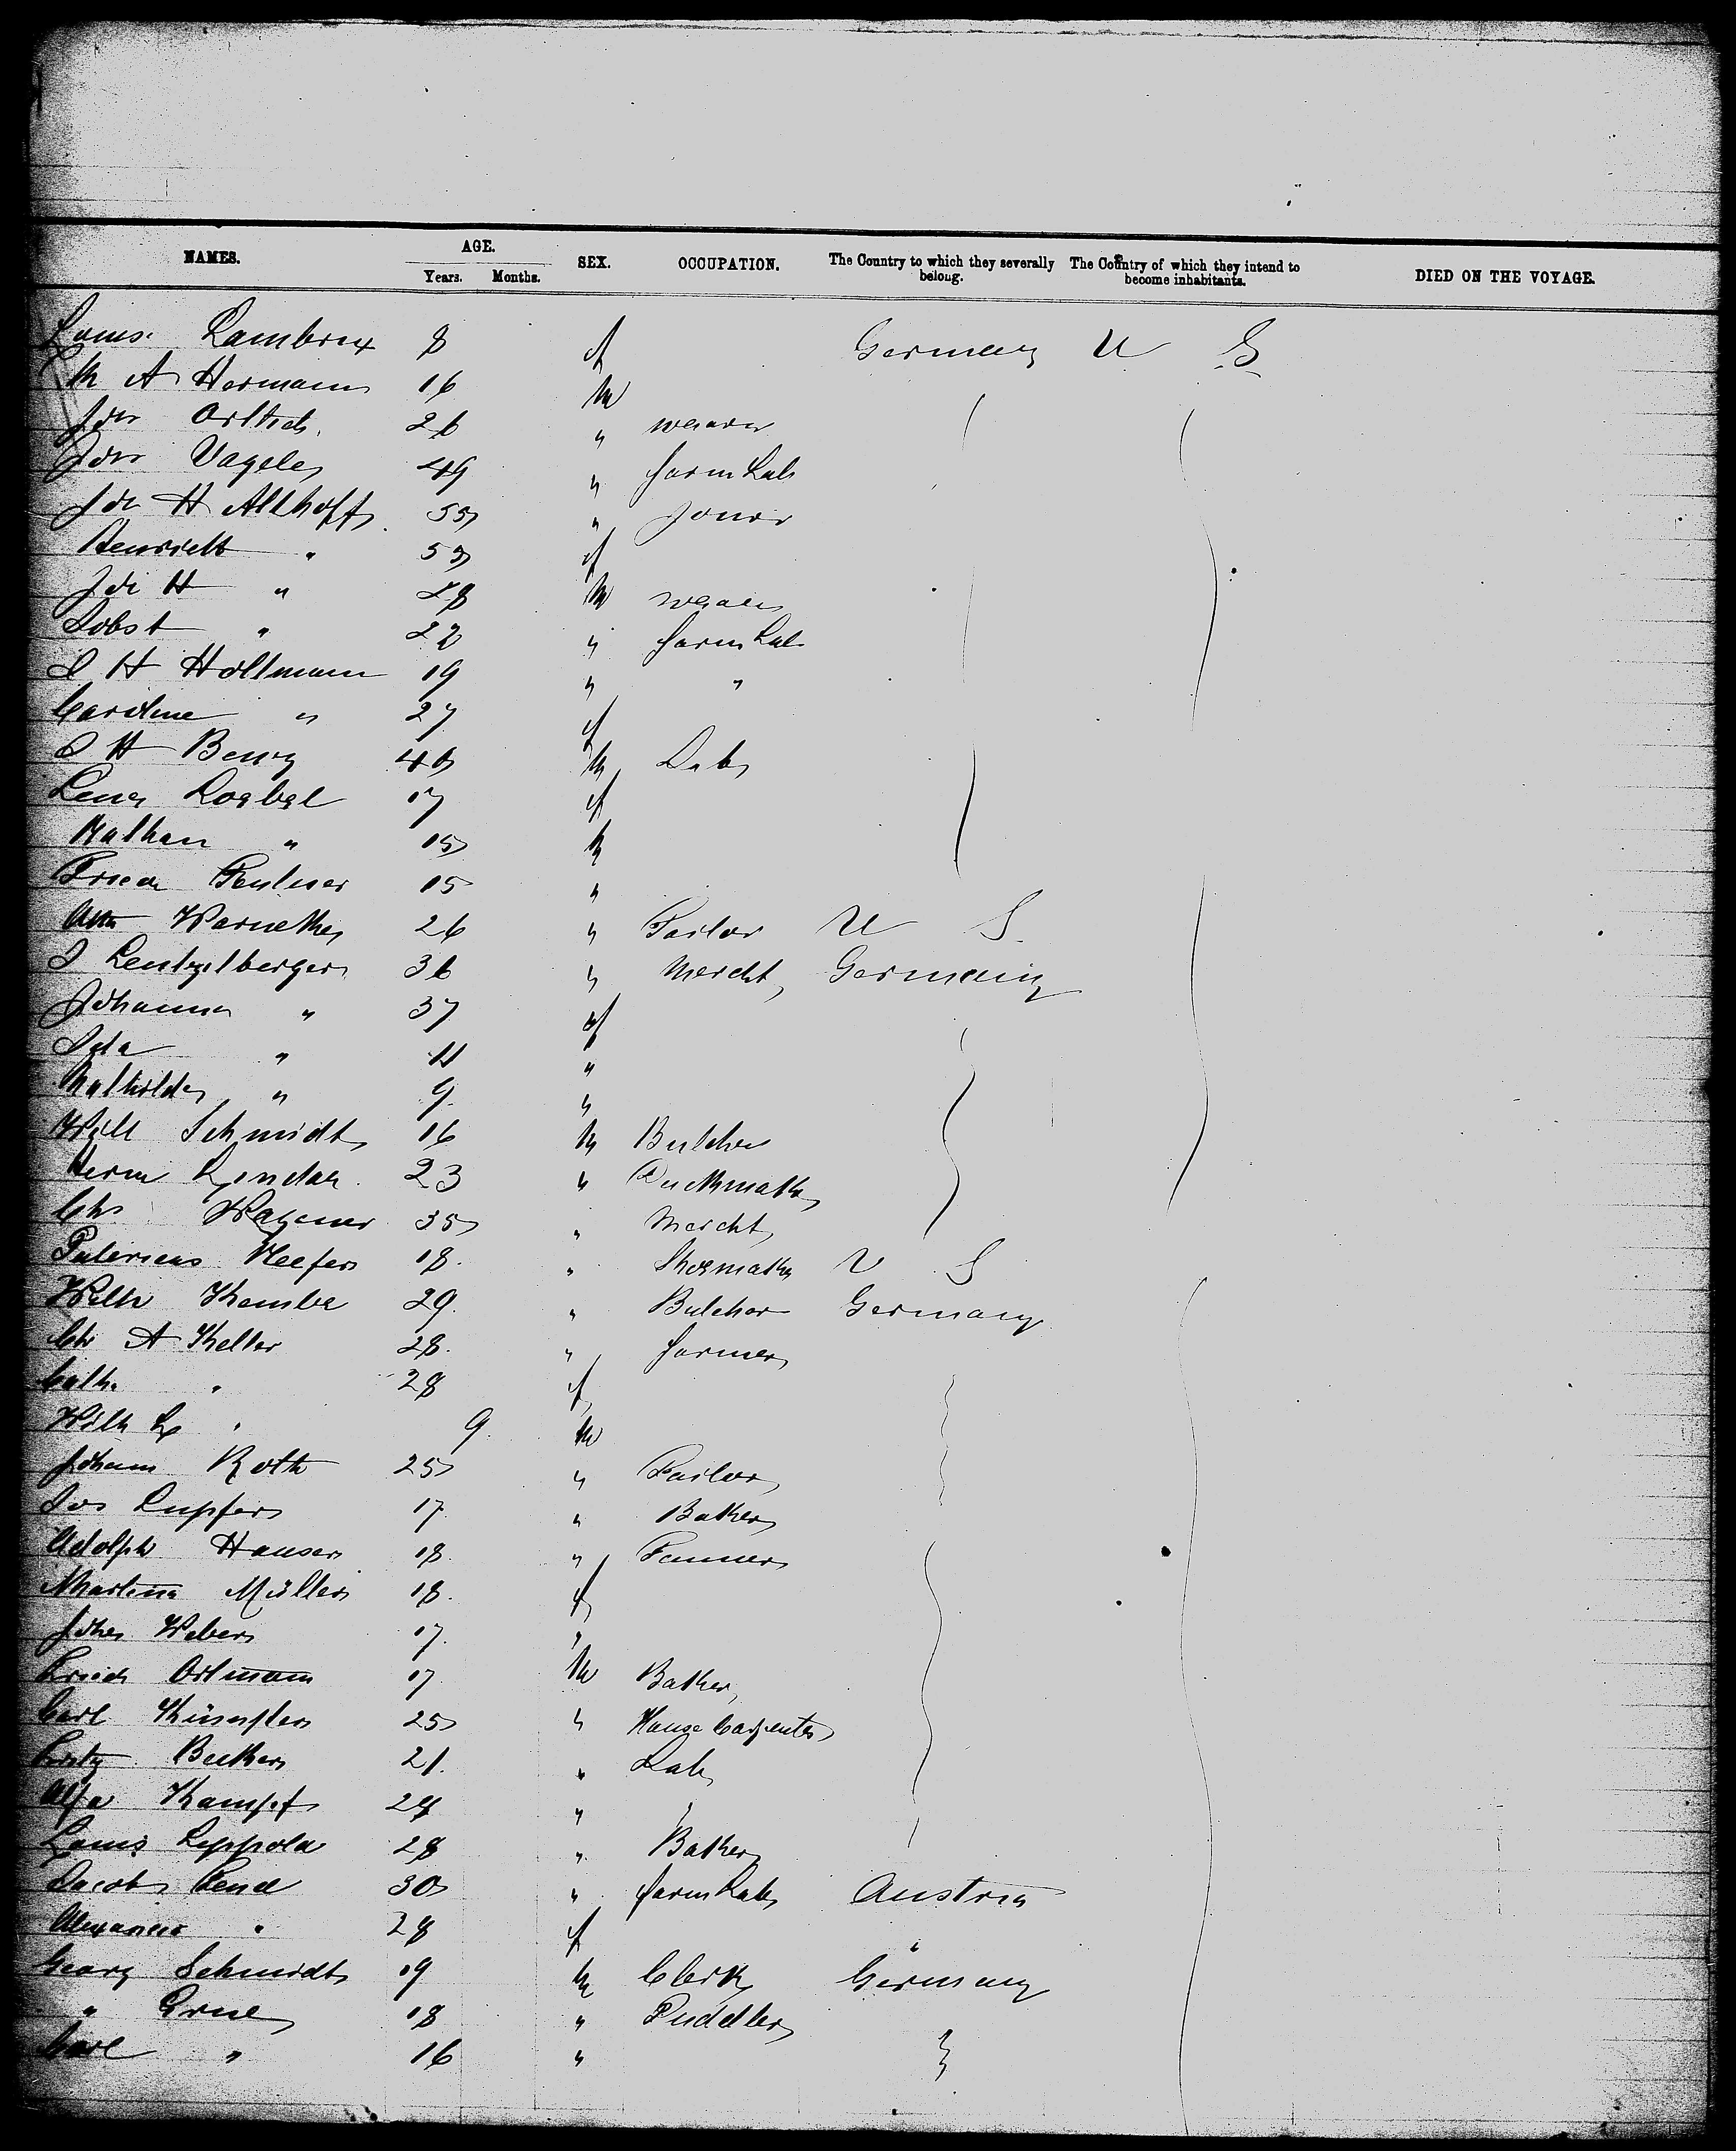 NAMES. AGE. SEX. OCCUPATION. The Country to which they severally belong. The Country of which they intend to become inhabitants. DIED ON THE VOYAGE.
Years. Months.
Louis. Lambrix 8 f Germany U S
M A Hermann 16 m
Joh 26 " weaver
Joh Vageler 49 " farm Lab
Joh H Althoff 55 " Joiner
Henriett " 53 f
Joh H " 28 m weaver
Jobst " 22 " farm Lab
J H Holtmann 19 " "
Caroline " 27 f
J H Benny 46 m Lab
Lena Loebel 17 f
Nathan " 15 m
Friedr 15 "
Warneke 26 " Tailor U S
J Lentzelberger 36 " Mercht Germany
Johanna " 37 f
Ida " 11 "
Mathilde " 9 "
Will Schmidt 16 m Butcher
Herm 23 "
Chr Wagener 35 " Mercht
Heefer 18 " Shoemaker U S
Wilh Kembe 29 " Butcher Germany
Chr A Keller 28 " farmer
Cath. " 28 f
Wilh L " 9 m
Johann Roth 25 " Tailor
Jos Lupfer 17 " Baker
Adolph Hauser 18 " Tanner
Martina Müller 18 f
Johs Weber 17 "
Friedr Ortmann 17 m Baker
Carl 25 " House Carpenter
Fritz Becker 21 " Lab
Kampf 24 " "
Louis Leppold 28 " Baker
Jacob 30 " farm Lab Austria
" 28 f "
Georg Schmidt 19 m Clerk Germany
" Grue 18 " Puddler
Carl " 16 "